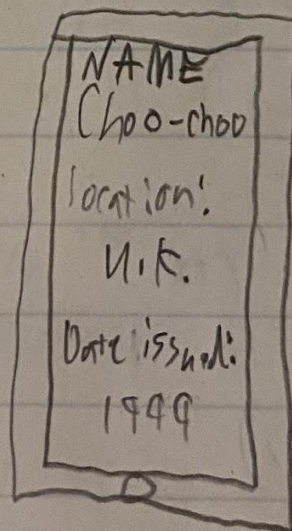 NAME
Choo-choo
location:
U.K.
Date issued:
1999